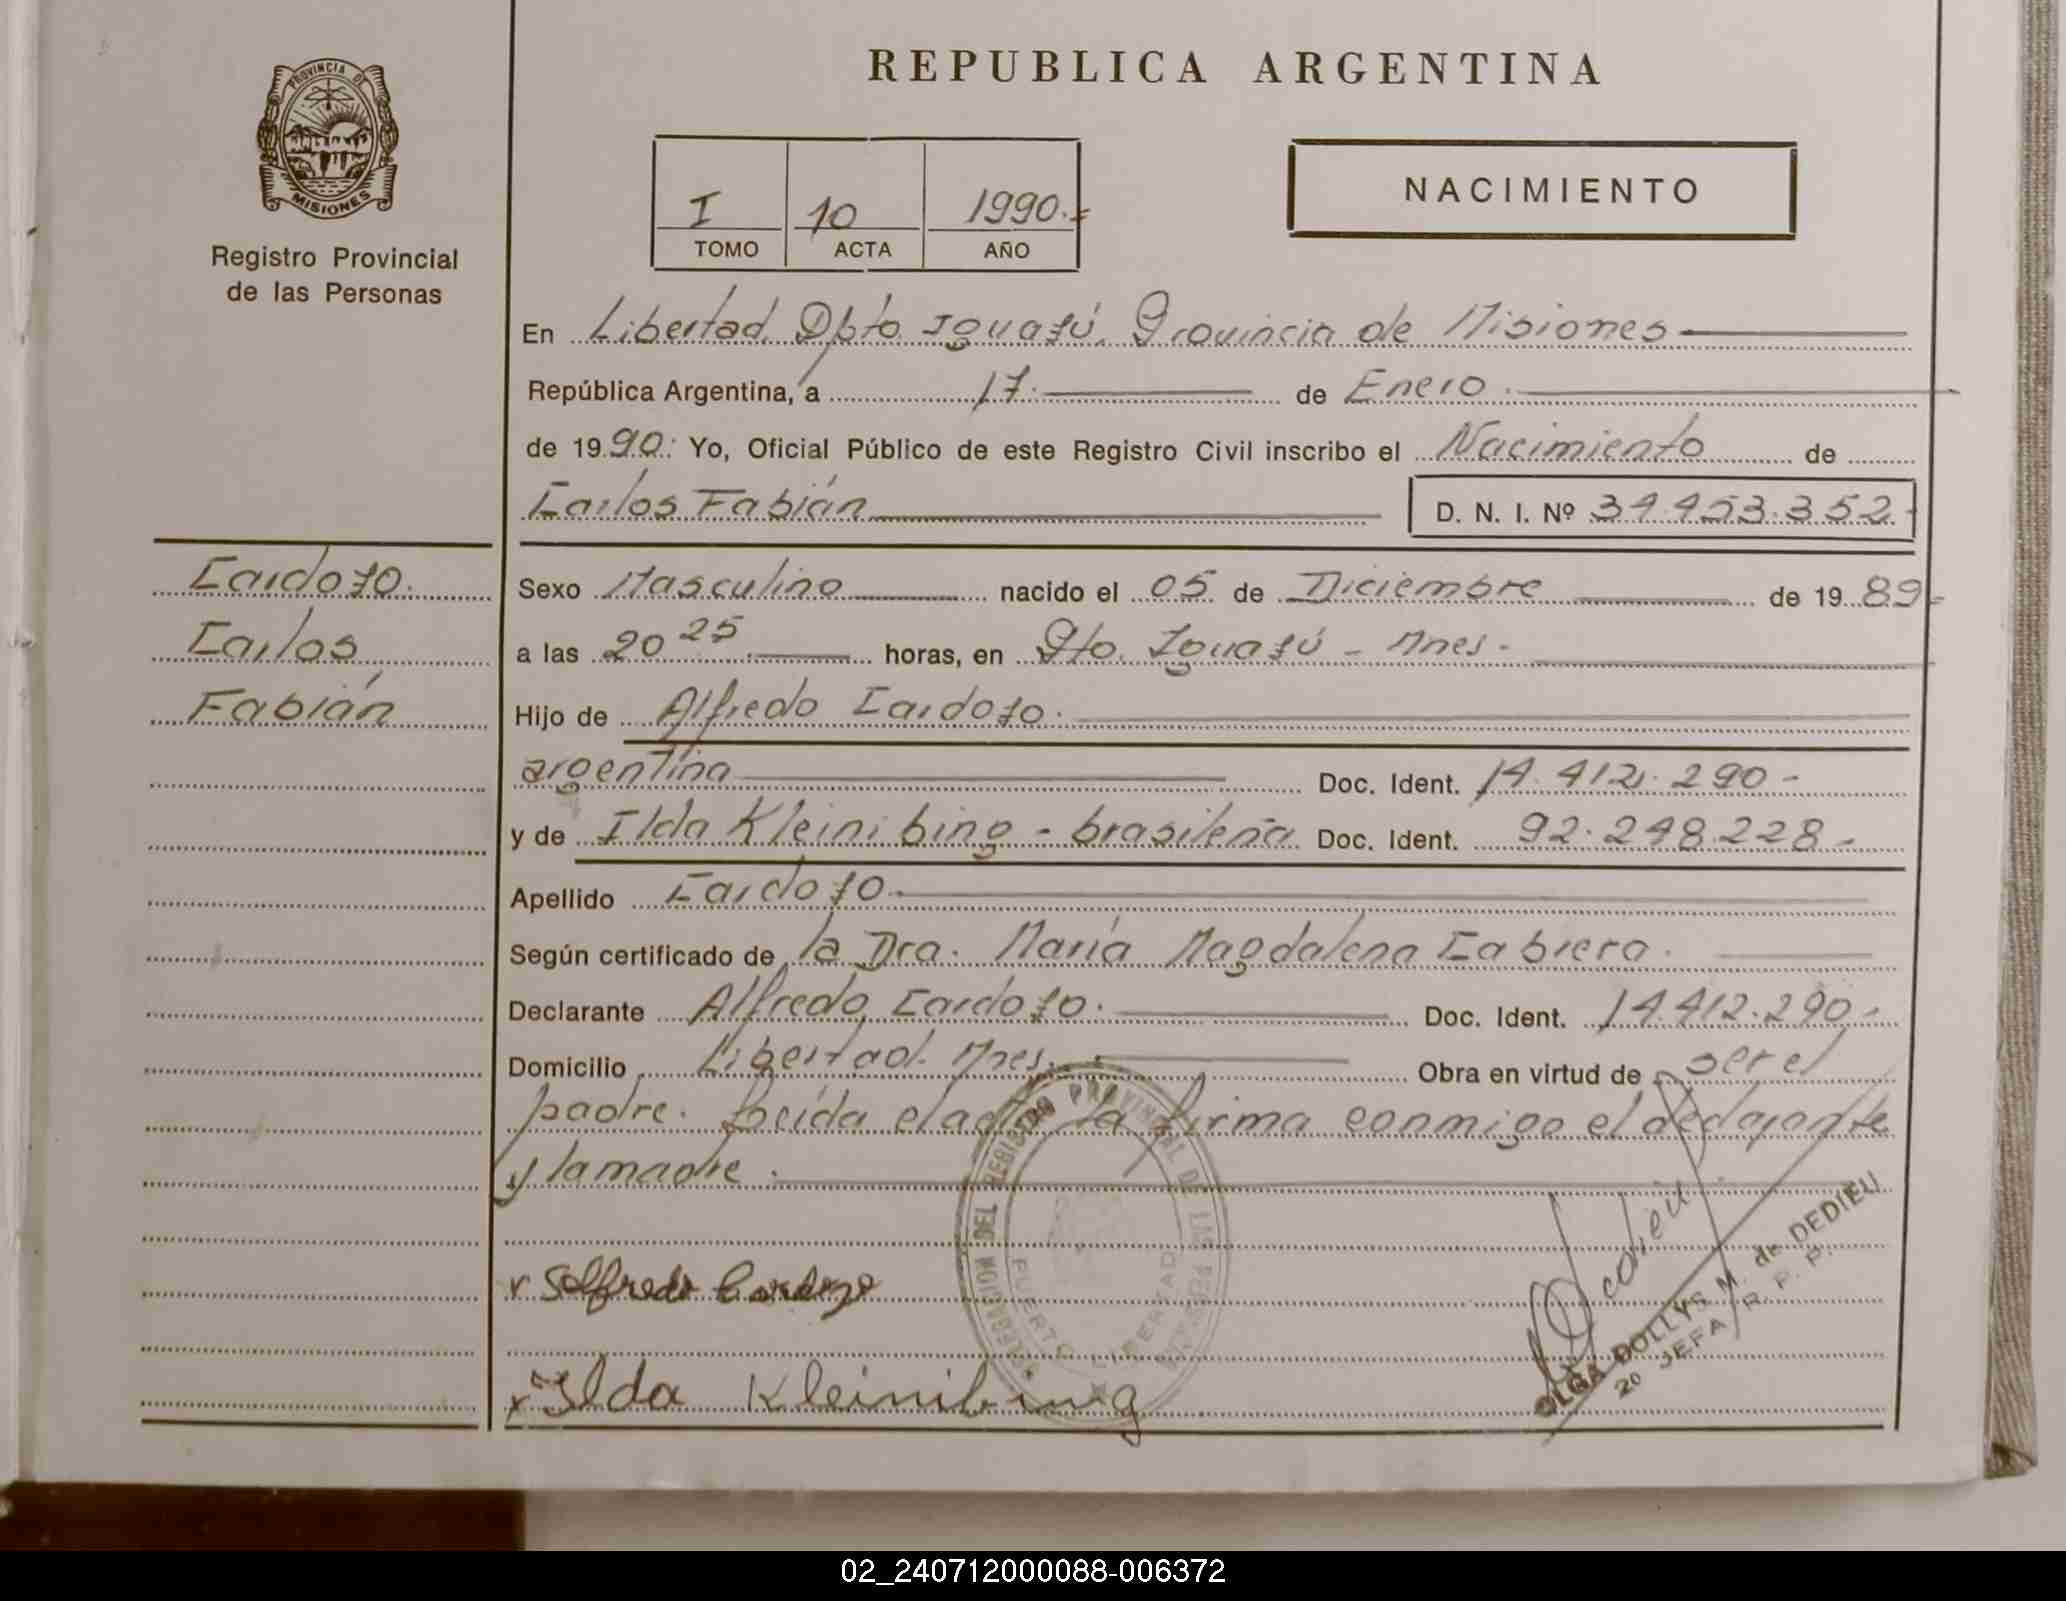 REPUBLICA ARGENTINA
PROVINCIA DE
MISIONES
Registro Provincial
de las Personas
I 10 1990.=
TOMO ACTA AÑO
NACIMIENTO
En Libertad, Dpto. Iguazú, Provincia de Misiones
República Argentina, a 17. de Enero.
de 1990. Yo, Oficial Público de este Registro Civil inscribo el Nacimiento de
Carlos Fabián D. N. I. Nº 34.453.352.-
Cardozo.
Carlos
Fabián
Sexo Masculino nacido el 05 de Diciembre de 1989-
a las 20 25 horas, en Pto. Iguazú - Mnes.
Hijo de Alfredo Cardozo.
argentina Doc. Ident. 14.412.290-
y de Ilda Kleinibing - brasileña Doc. Ident. 92.248.228-
Apellido Cardozo.
Según certificado de la Dra. María Magdalena Cabrera.
Declarante Alfredo Cardozo. Doc. Ident. 14.412.290-
Domicilio Libertad. Mnes. Obra en virtud de ser el
padre. Leída el acta la firma conmigo el declarante
y la madre.
DELEGACION DEL REGISTRO PROVINCIAL DE LAS PERSONAS
PUERTO LIBERTAD
Dedieu
OLGA DOLLYS M. de DEDIEU
2º JEFA R. P. P.
x Alfredo Cardozo
x Ilda Kleinibing
02_240712000088-006372